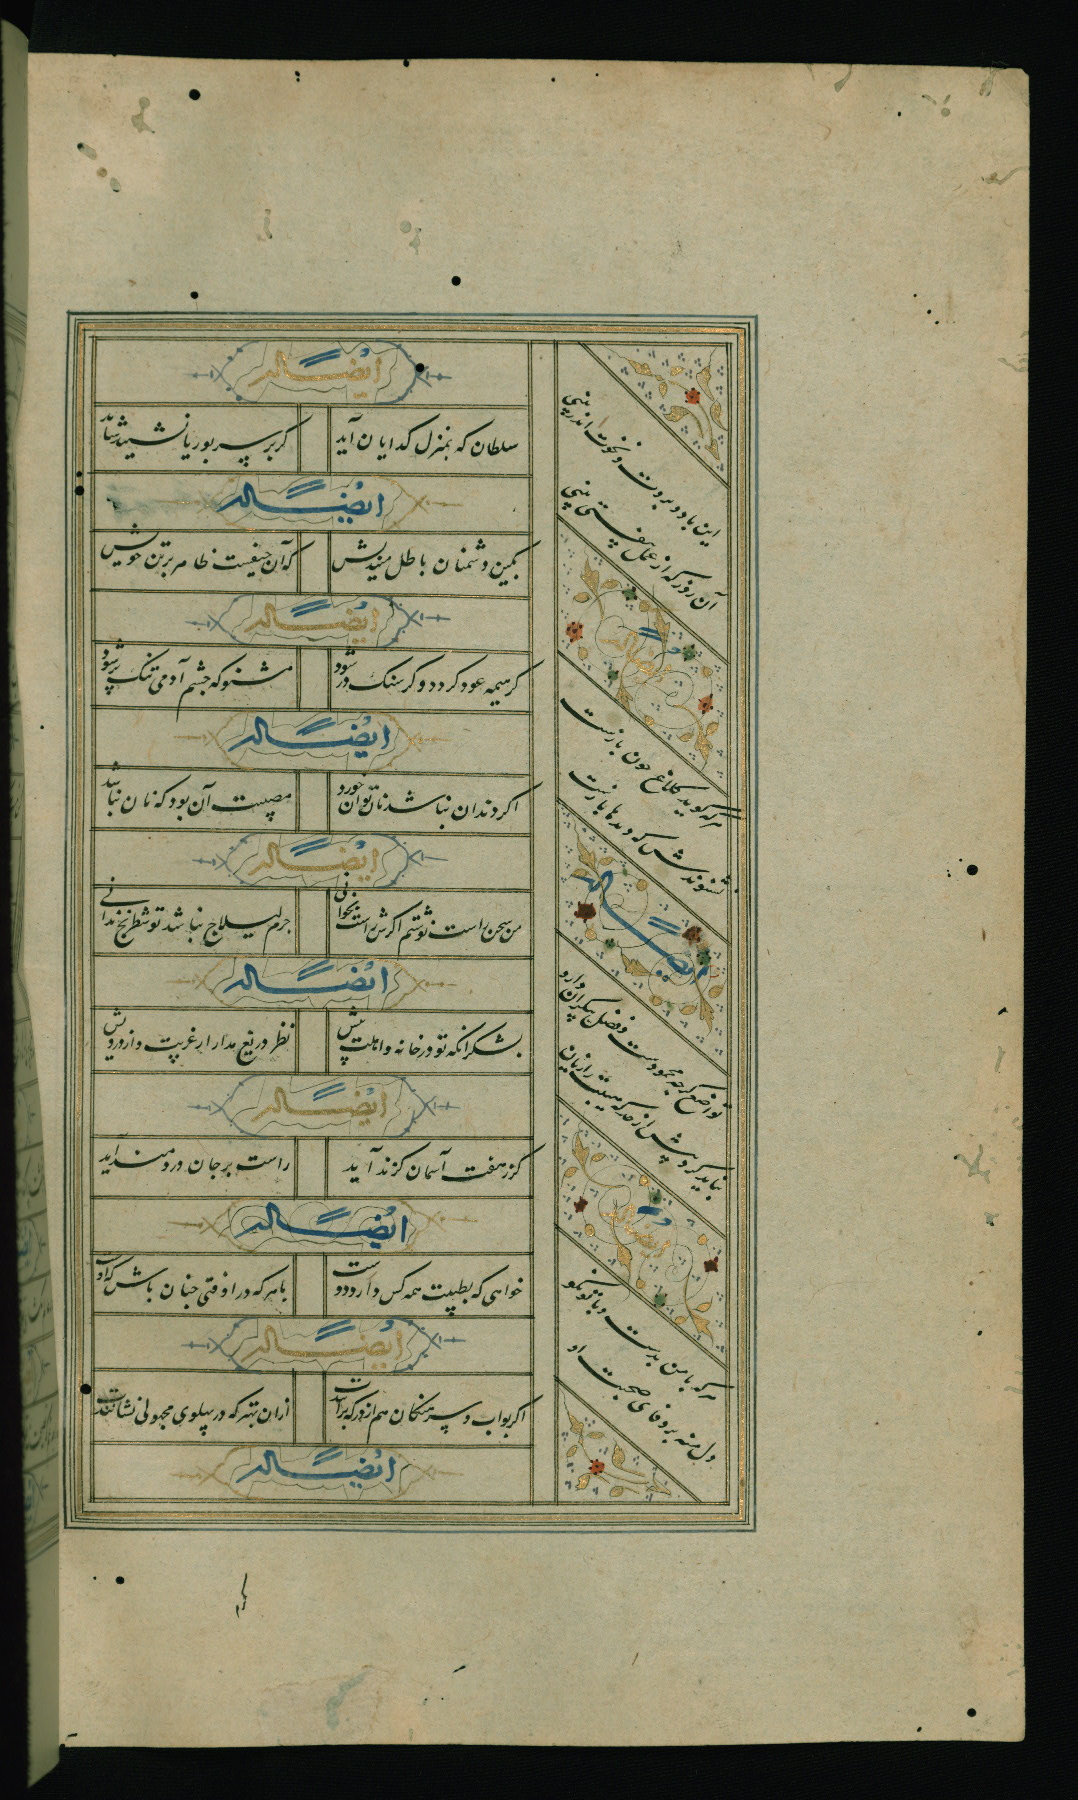 ایضاً له
سلطان که بمنزل گدایان آید
گر بر سر بوریا نشیند شاید
ایضاً له
بکین دشمنان باطل میندیش
که آن حیفست ظاهر بر تن خویش
ایضاً له
گر هیمه عود گردد و گر سنگ در شود
مشنو که چشم آدمی تنگ پر شود
ایضاً له
اگر دندان نباشد نان توان خورد
مصیبت آن بود که نان نباشد
ایضاً له
من سخن راست نوشتم اگرش راست بخوانی
جرم لیلاج نباشد تو شطرنج ندانی
ایضاً له
بشکر آنکه تو در خانه و اهلت پیش
نظر دریغ مدار از غریب و از درویش
ایضاً له
گر ز هفت آسمان گزند آید
راست بر جان دردمند آید
ایضاً له
خواهی که بطیبت همه کس دارد دوست
با هر که در اوفتی چنان باش که اوست
ایضاً له
اگر بواب و سرهنگان هم از درگه برانندت
ازان بهتر که در پهلوی مجهولی نشانندت
ایضاً له
این باد و بروت و نخوت اندر بینی
آن روز که از عمل بیفتی بینی
ایضاً له
هر که گوید کلاغ چون بازست
نشنوندش که دیدها بازست
ایضاً له
تواضع گرچه محمودست و فضل بیکران دارد
نباید کرد بیش از حد که هیبت را زیان دارد
ایضاً له
هر که با من بدست و با تو نکو
دل منه بر وفای صحبت او